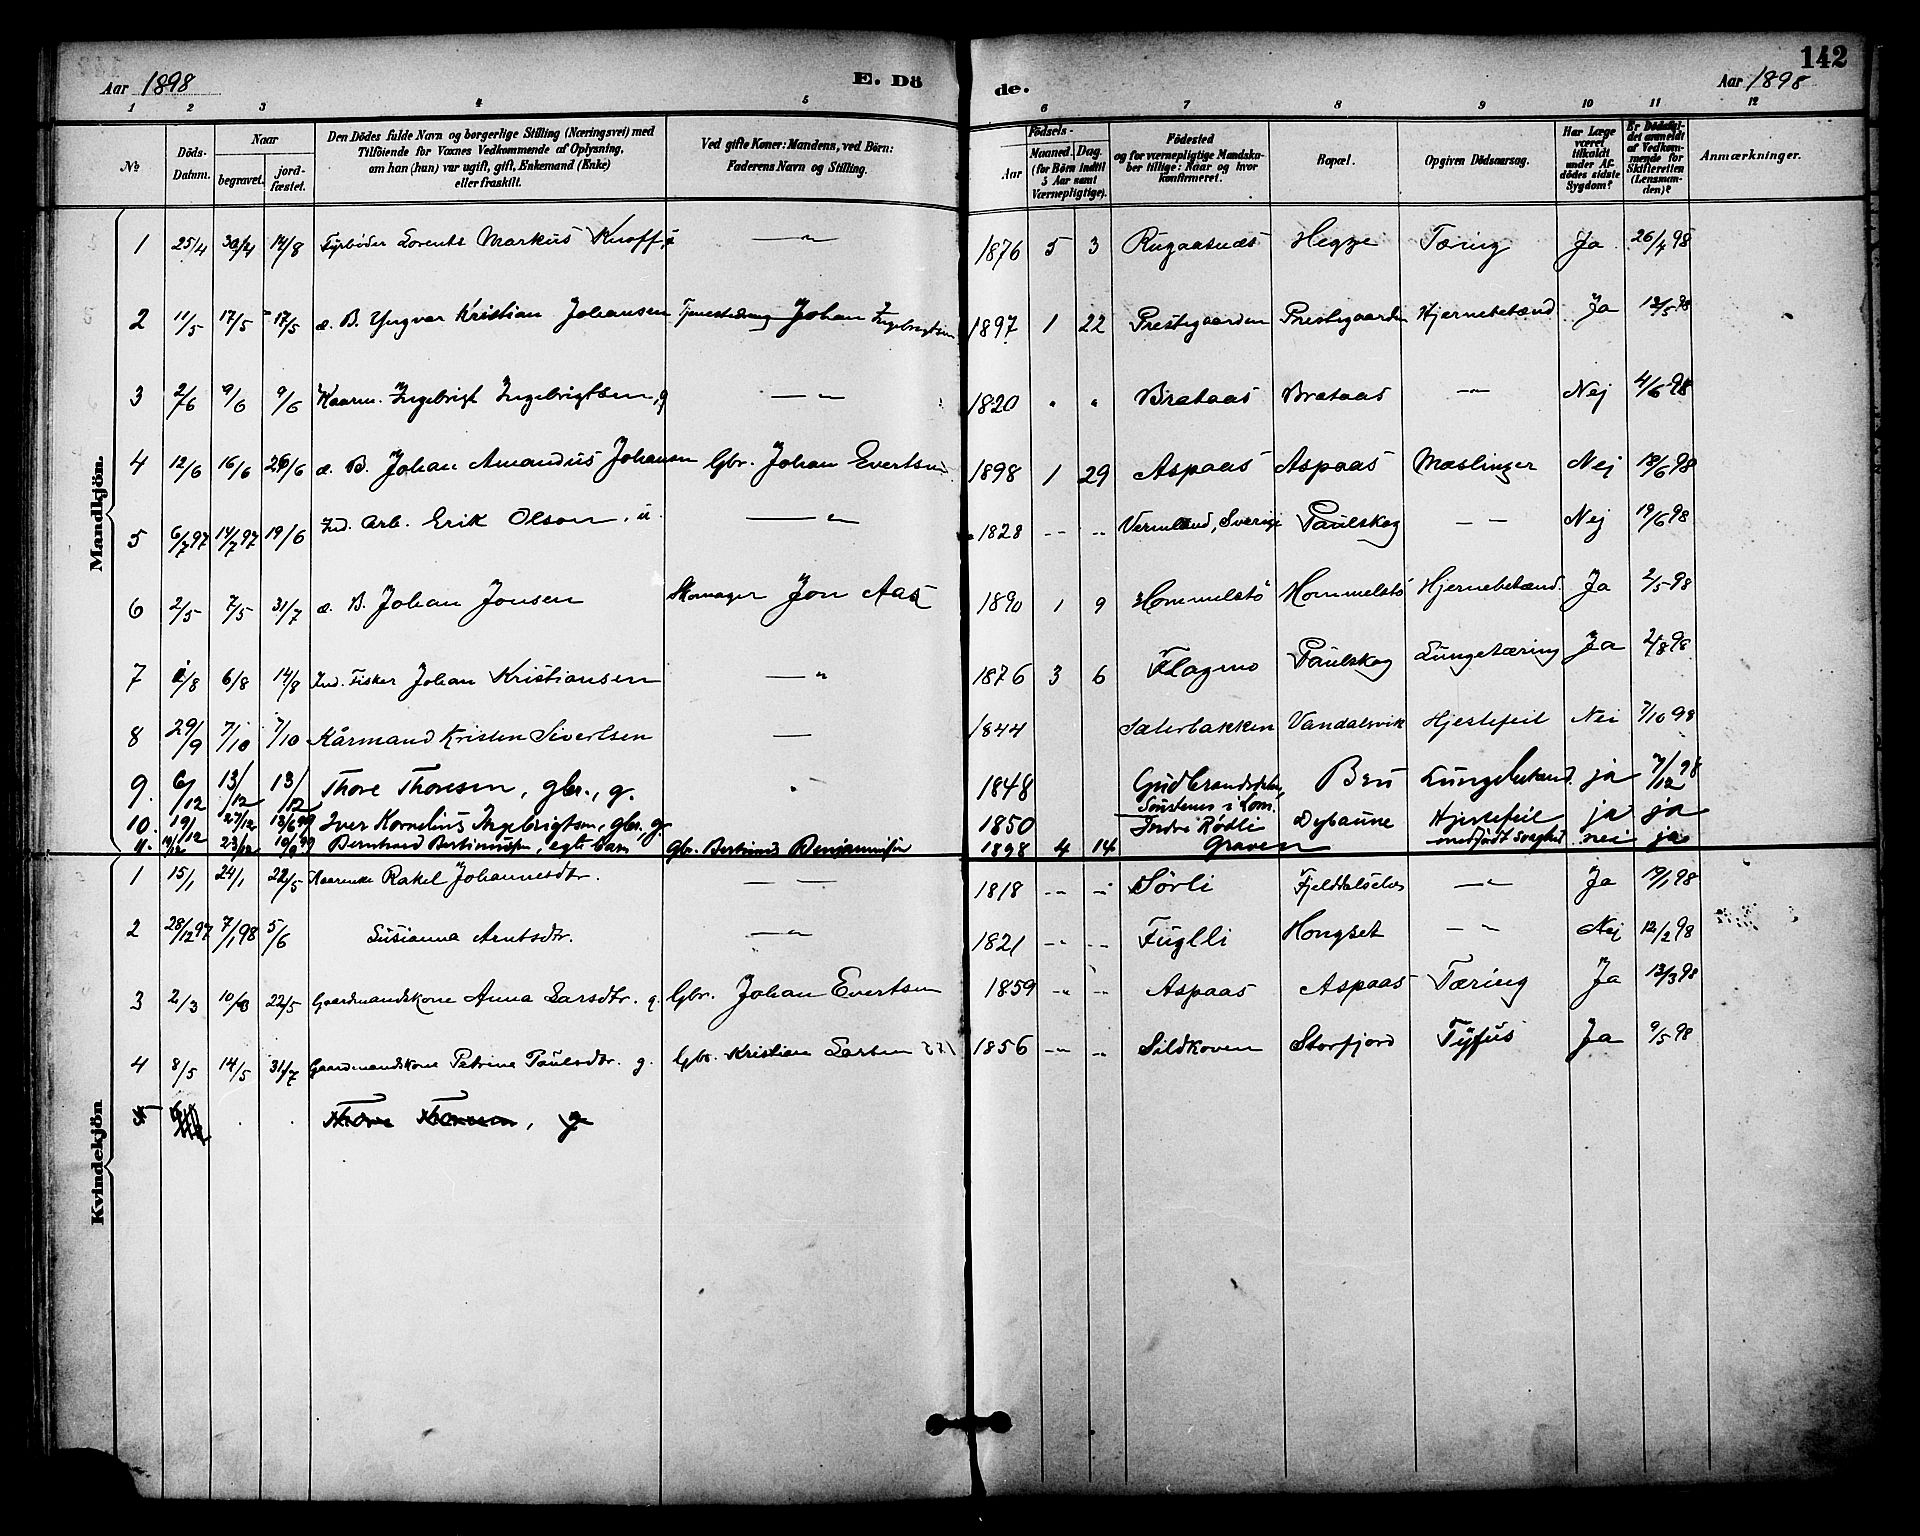 142
Aar 1898 E. Dö de. Aar 1898
1 2 3 4 5 6 7 8 9 10 11 12
No. Döds-Datum. Naar begravet. jordfæstet. Den Dödes fulde Navn og borgerlige Stilling (Næringsvei) med Tilföiende for Voxnes Vedkommende af Oplysning, om han (hun) var ugift, gift, Enkemand (Enke) eller fraskilt. Ved gifte Koner: Mandens, ved Börn: Faderens Navn og Stilling. Födsels- Aar Maaned. Dag. (for Börn indtil 5 Aar samt Værnepligtige). Födested og for værnepligtige Mandskaber tillige: Naar og hvor konfirmeret. Bopæl. Opgiven Dödsaarsag. Har Læge været tilkaldt under Afdödes sidste Sygdom? Er Dödsfaldet anmeldt af Vedkommende for Skifteretten (Lensmanden)? Anmærkninger.
Mandkjön.
1 25/4 30/4 14/8 Fyrböder Lorents Markus Knoff, u — „ 1876 5 3 Rugaasnes Hegge Tæring Ja 26/4 98
2 11/5 17/5 17/5 æ. B. Yngvar Kristian Johansen Johan Ingebrigtsen 1897 1 22 Prestegaarden Prestegaarden Hjernebetænd Ja 12/5 98
3 2/6 9/6 9/6 Kaarm. Ingebrigt Ingebrigtsen, g — „ 1820 „ „ Brataas Brataas — „ Nej 4/6 98
4 12/6 16/6 26/6 æ. B. Johan Amandus Johansen Gbr. Johan Evertsen 1898 1 29 Aspaas Aspaas Mæslinger Nej 18/6 98
5 6/7 97 14/7 97 19/6 Ind. Arb. Erik Olson, u. — „ 1828 -- -- Vermland, Sverige Paulskog — „ Nej 19/6 98
6 2/5 7/5 31/7 æ. B. Johan Jonsen Skomager Jon Aas 1890 1 9 Hommelstö Hommelstö Hjernebetænd. Ja 2/5 98
7 1/8 6/8 14/8 Ind. Fisker Johan Kristiansen — „ 1876 3 6 Flagmo Paulskog Lungetæring Ja 2/8 98
8 29/9 7/10 7/10 Kårmand Kristen Sivertsen — 1844 Sæterbakken Vandalsvik Hjertefeil Nei 7/10 98
9. 6/12 13/12 13/12 Thore Thoresen, gbr., g. „ 1848 Gudbrandsdalen, i Lom. Beu Lungebetænd. ja 7/12 98
10. 19/12 27/12 13/6 99 Iver Kornelius Ingebrigtsen, gbr., g. 1850 Indre Rödli Dybaune Hjertefeil ja ja
11. 14/12 23/12 10/9 99 Bernhard Bertinussen, egte barn Gbr. Bertinus Benjaminsen 1898 4 14 Graven medfödt svaghed nei ja
Kvindekjön
1 15/1 24/1 22/5 Kaarenke Rakel Johannesdtr. — — 1818 -- -- Sörli Fjelddalselven — „ Ja 17/1 98
2 28/12 97 7/1 98 5/6 Susianna Arntsdtr. — „ 1821 -- -- Fuglli Hongset — „ Nej 12/2 98
3 2/3 10/3 22/5 Gaardmandskone Anna Larsdtr. g. Gbr. Johan Evertsen 1859 -- -- Aspaas Aspaas Tæring Ja 13/3 98
4 8/5 14/5 31/7 Gaardmandskone Petrine Paulsdtr. g. Gbr. Kristian Larsen 1856 -- -- Sildkoven Storfjord Tyfus Ja 9/5 98
5 Thore Thoresen, g